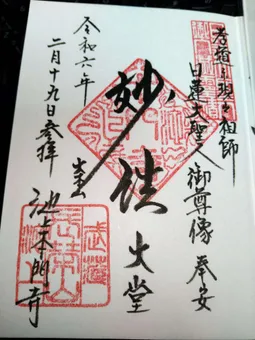 祖師
日蓮大聖人御尊像 奉安
妙法 大堂
令和六年
二月十九日参拝
大本山
池上本門寺